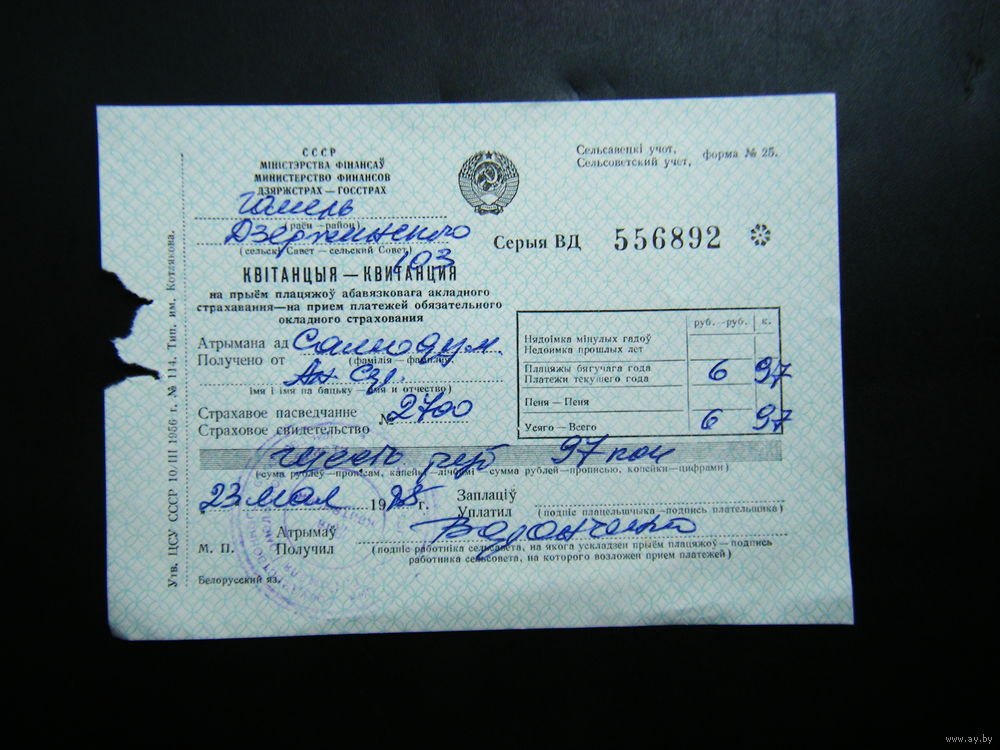 СССР
МІНІСТЭРСТВА ФІНАНСАЎ
МИНИСТЕРСТВО ФИНАНСОВ
ДЗЯРЖСТРАХ — ГОССТРАХ
(раён—район)
Дзержинского
(сельск. Савет—сельский Совет)
103
Сельсавецкі учот,
Сельсоветский учет, форма № 25.
Серыя ВД 556892
КВІТАНЦЫЯ — КВИТАНЦИЯ
на прыём плацяжоў абавязковага акладного
страхавання—на прием платежей обязательного
окладного страхования
Атрымана ад
Получено от
(фамілія—фамилия)
(імя і імя па бацьку—имя и отчество)
Страхавое пасведчанне
Страховое свидетельство № 2700
руб.—руб. к.
Нядоімка мінулых гадоў
Недоимка прошлых лет
Плацяжы бягучага года
Платежи текущего года 6 97
Пеня — Пеня
Усяго—Всего 6 97
шесть руб 97 коп
(сума рублеў—прописам, капейкі—лічбамі—сумма рублей—прописью, копейки—цифрами)
23 мая
Заплаціў
Уплатил
(подпіс плацельшчыка—подпись плательщика)
Атрымаў
М. П. Получил
(подпіс работніка сельсавета, на якога ускладзен прыём плацяжоў—подпись
работника сельсовета, на которого возложен прием платежей)
Белорусский яз.
Утв. ЦСУ СССР 10/III 1956 г. № 114. Тип. им. Котлякова.
www.ay.by